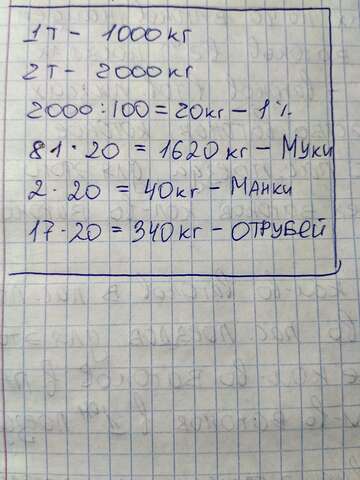 1т - 1000кг
2т - 2000кг
2000:100=20кг - 1%
81·20 = 1620кг - Муки
2·20 = 40кг - Манки
17·20 = 340кг - Отрубей